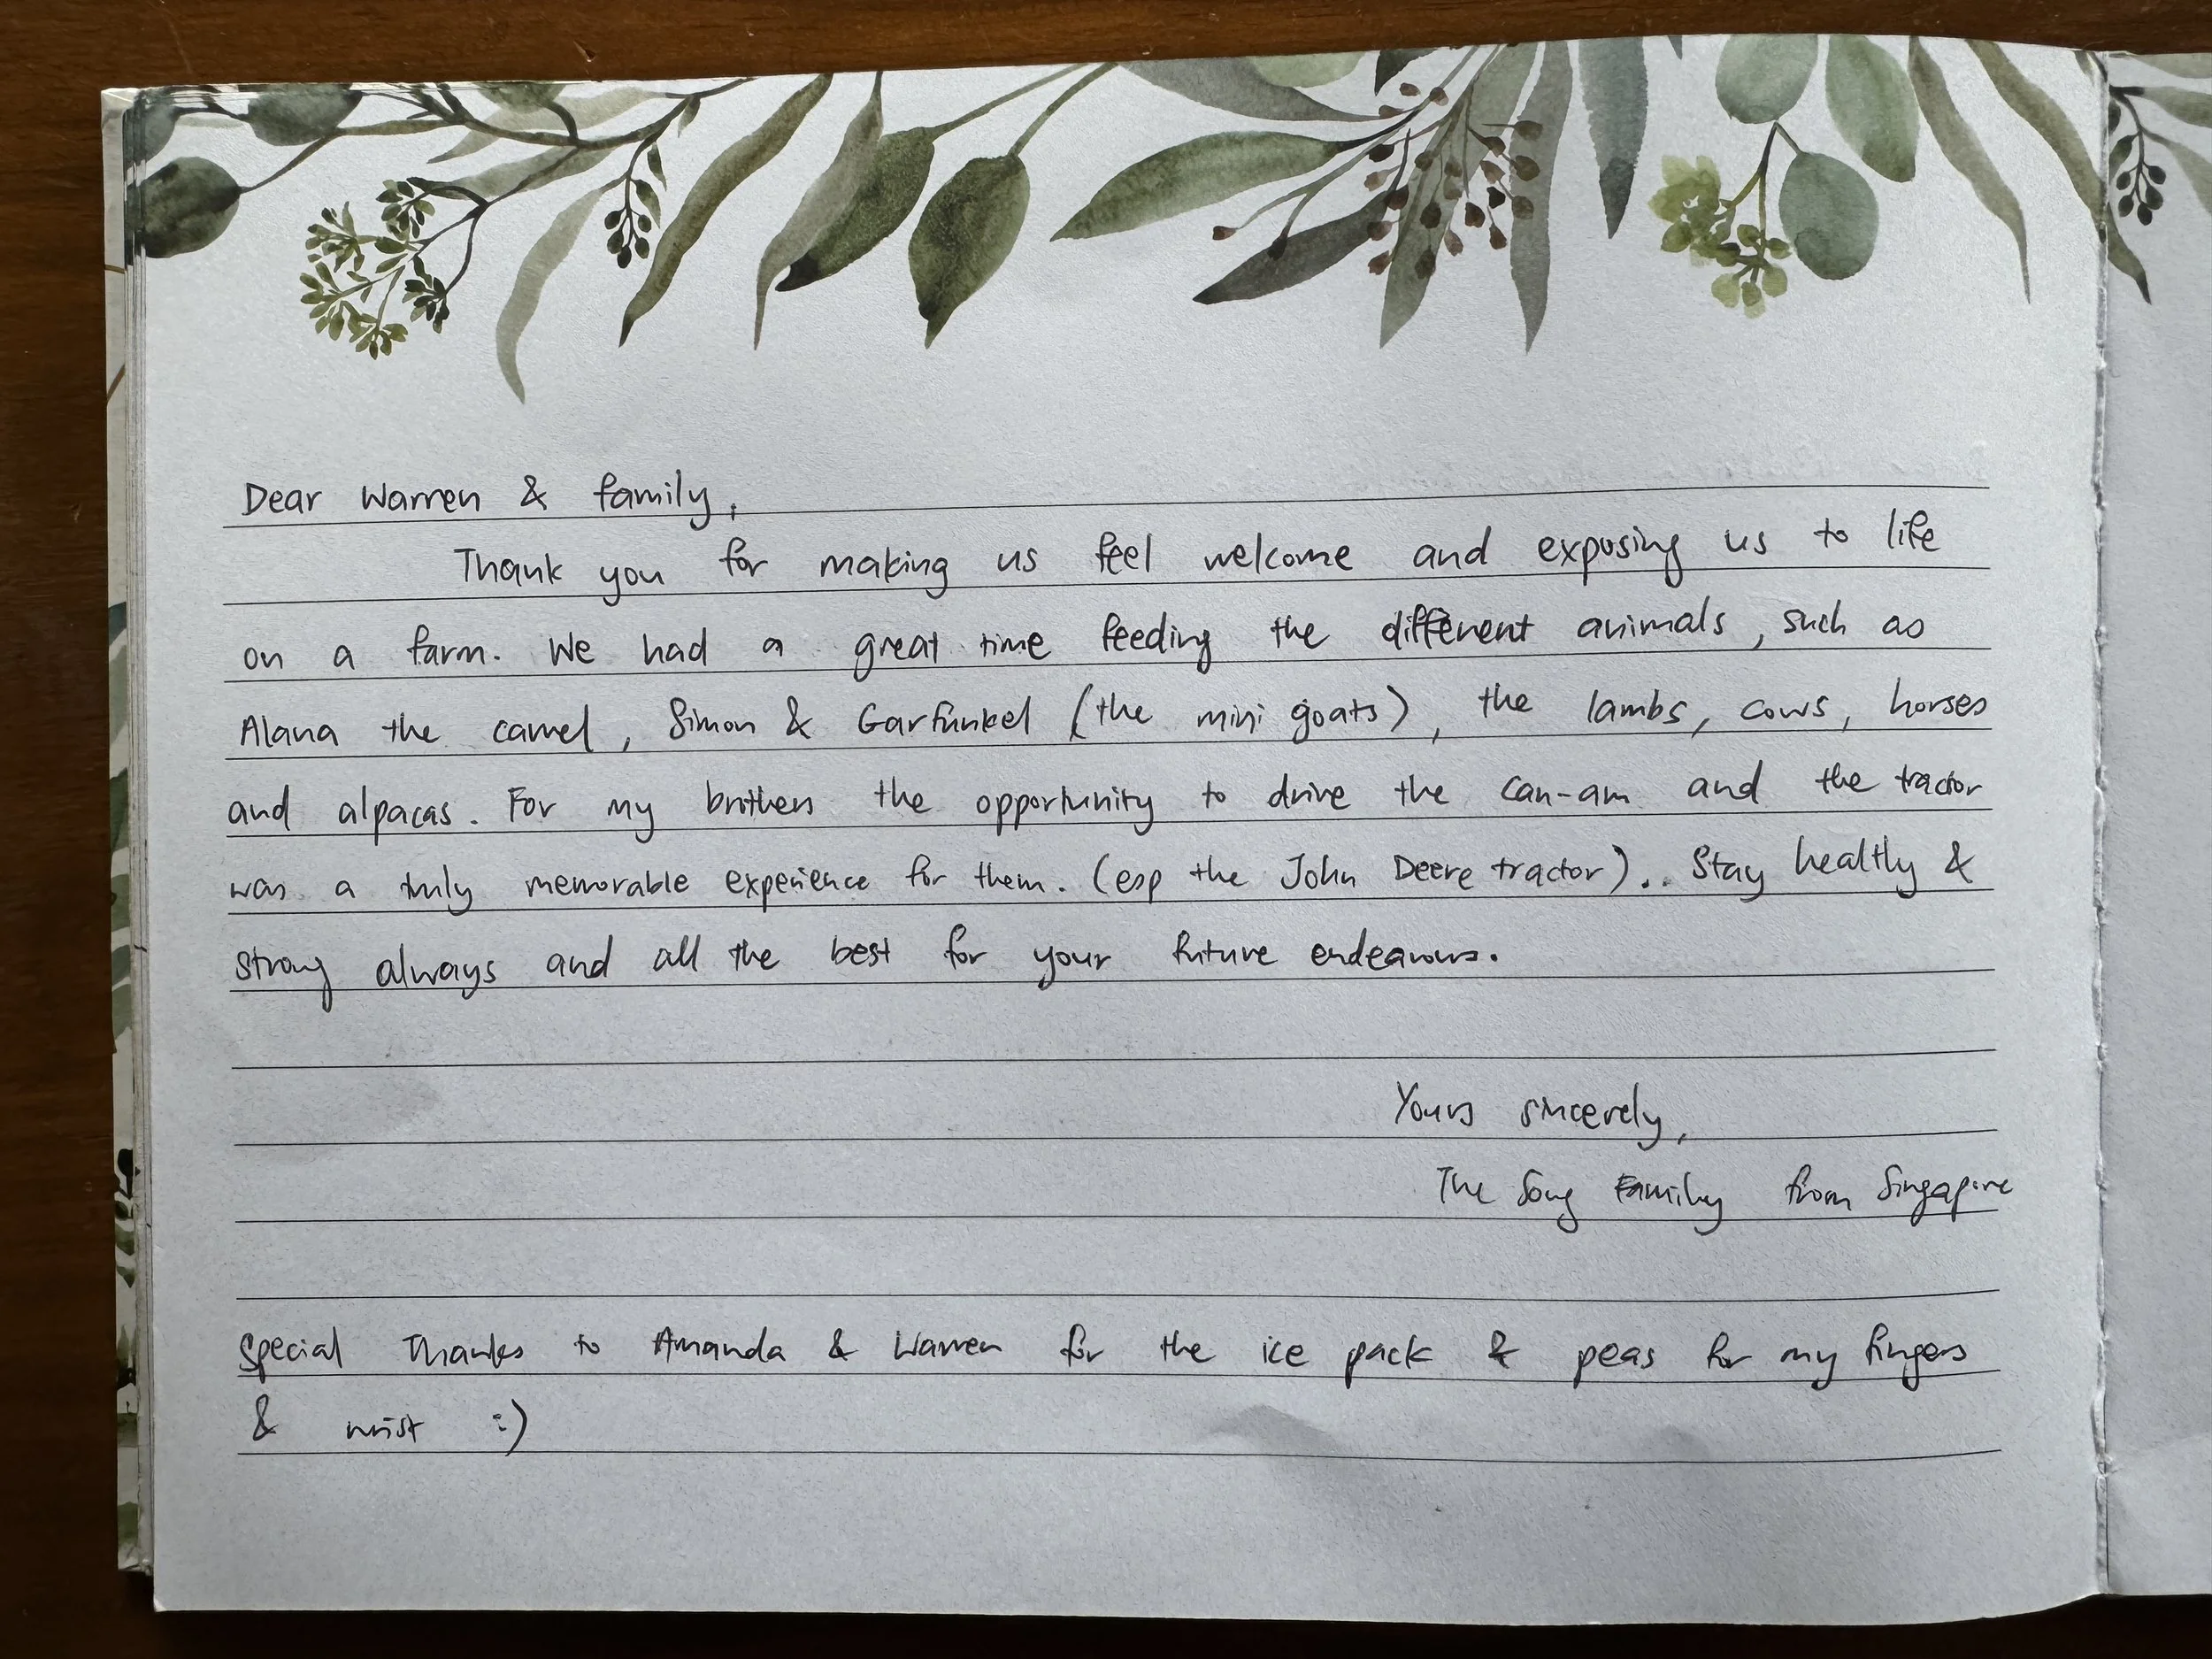 Dear Warren & family,
Thank you for making us feel welcome and exposing us to life
on a farm. We had a great time feeding the different animals, such as
Alana the camel, Simon & Garfunkel (the mini goats), the lambs, cows, horses
and alpacas. For my brothers the opportunity to drive the can-am and the tractor
was a truly memorable experience for them. (esp the John Deere tractor).. Stay healthy &
strong always and all the best for your future endeavours.
Yours sincerely,
The Song Family from Singapore
Special Thanks to Amanda & Warren for the ice pack & peas for my fingers
& wrist :)